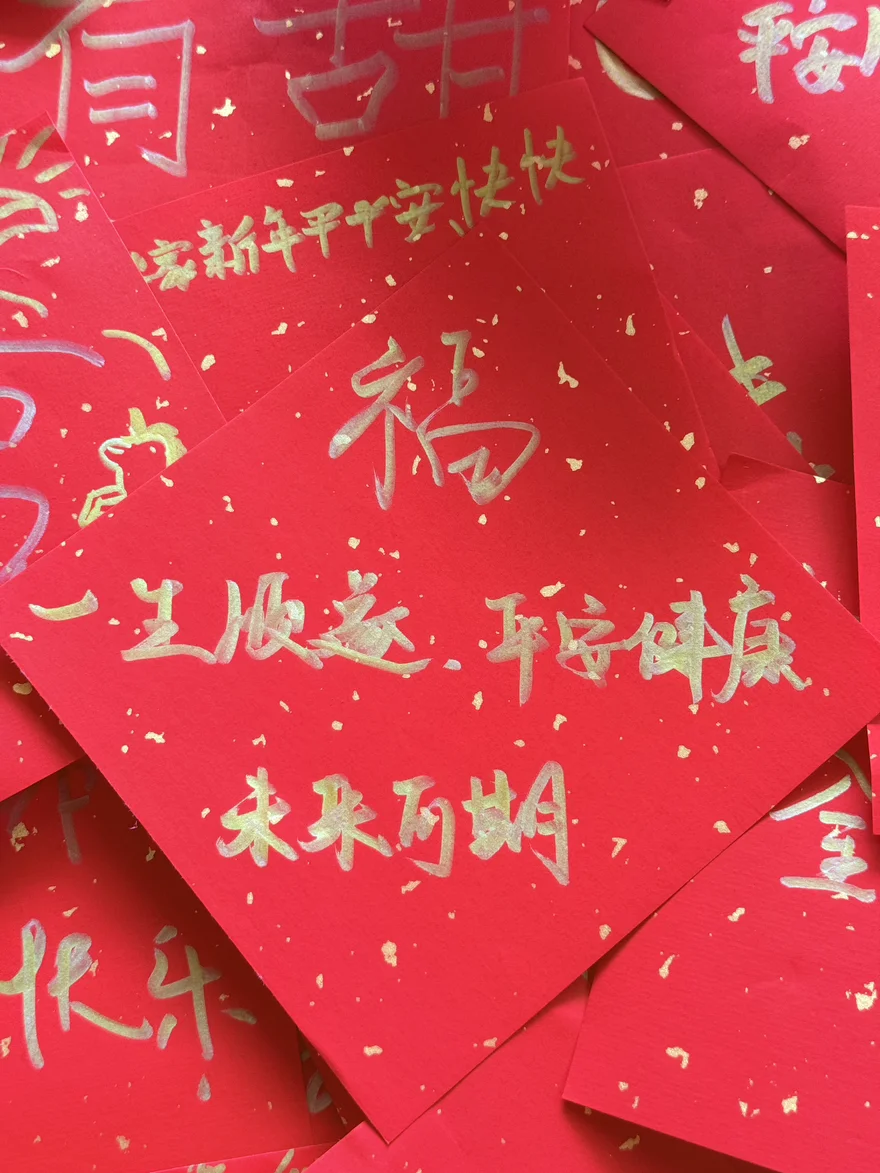 有甜
平安
家新年平平安安快快
福
一生顺遂、平安健康
未来可期
快乐